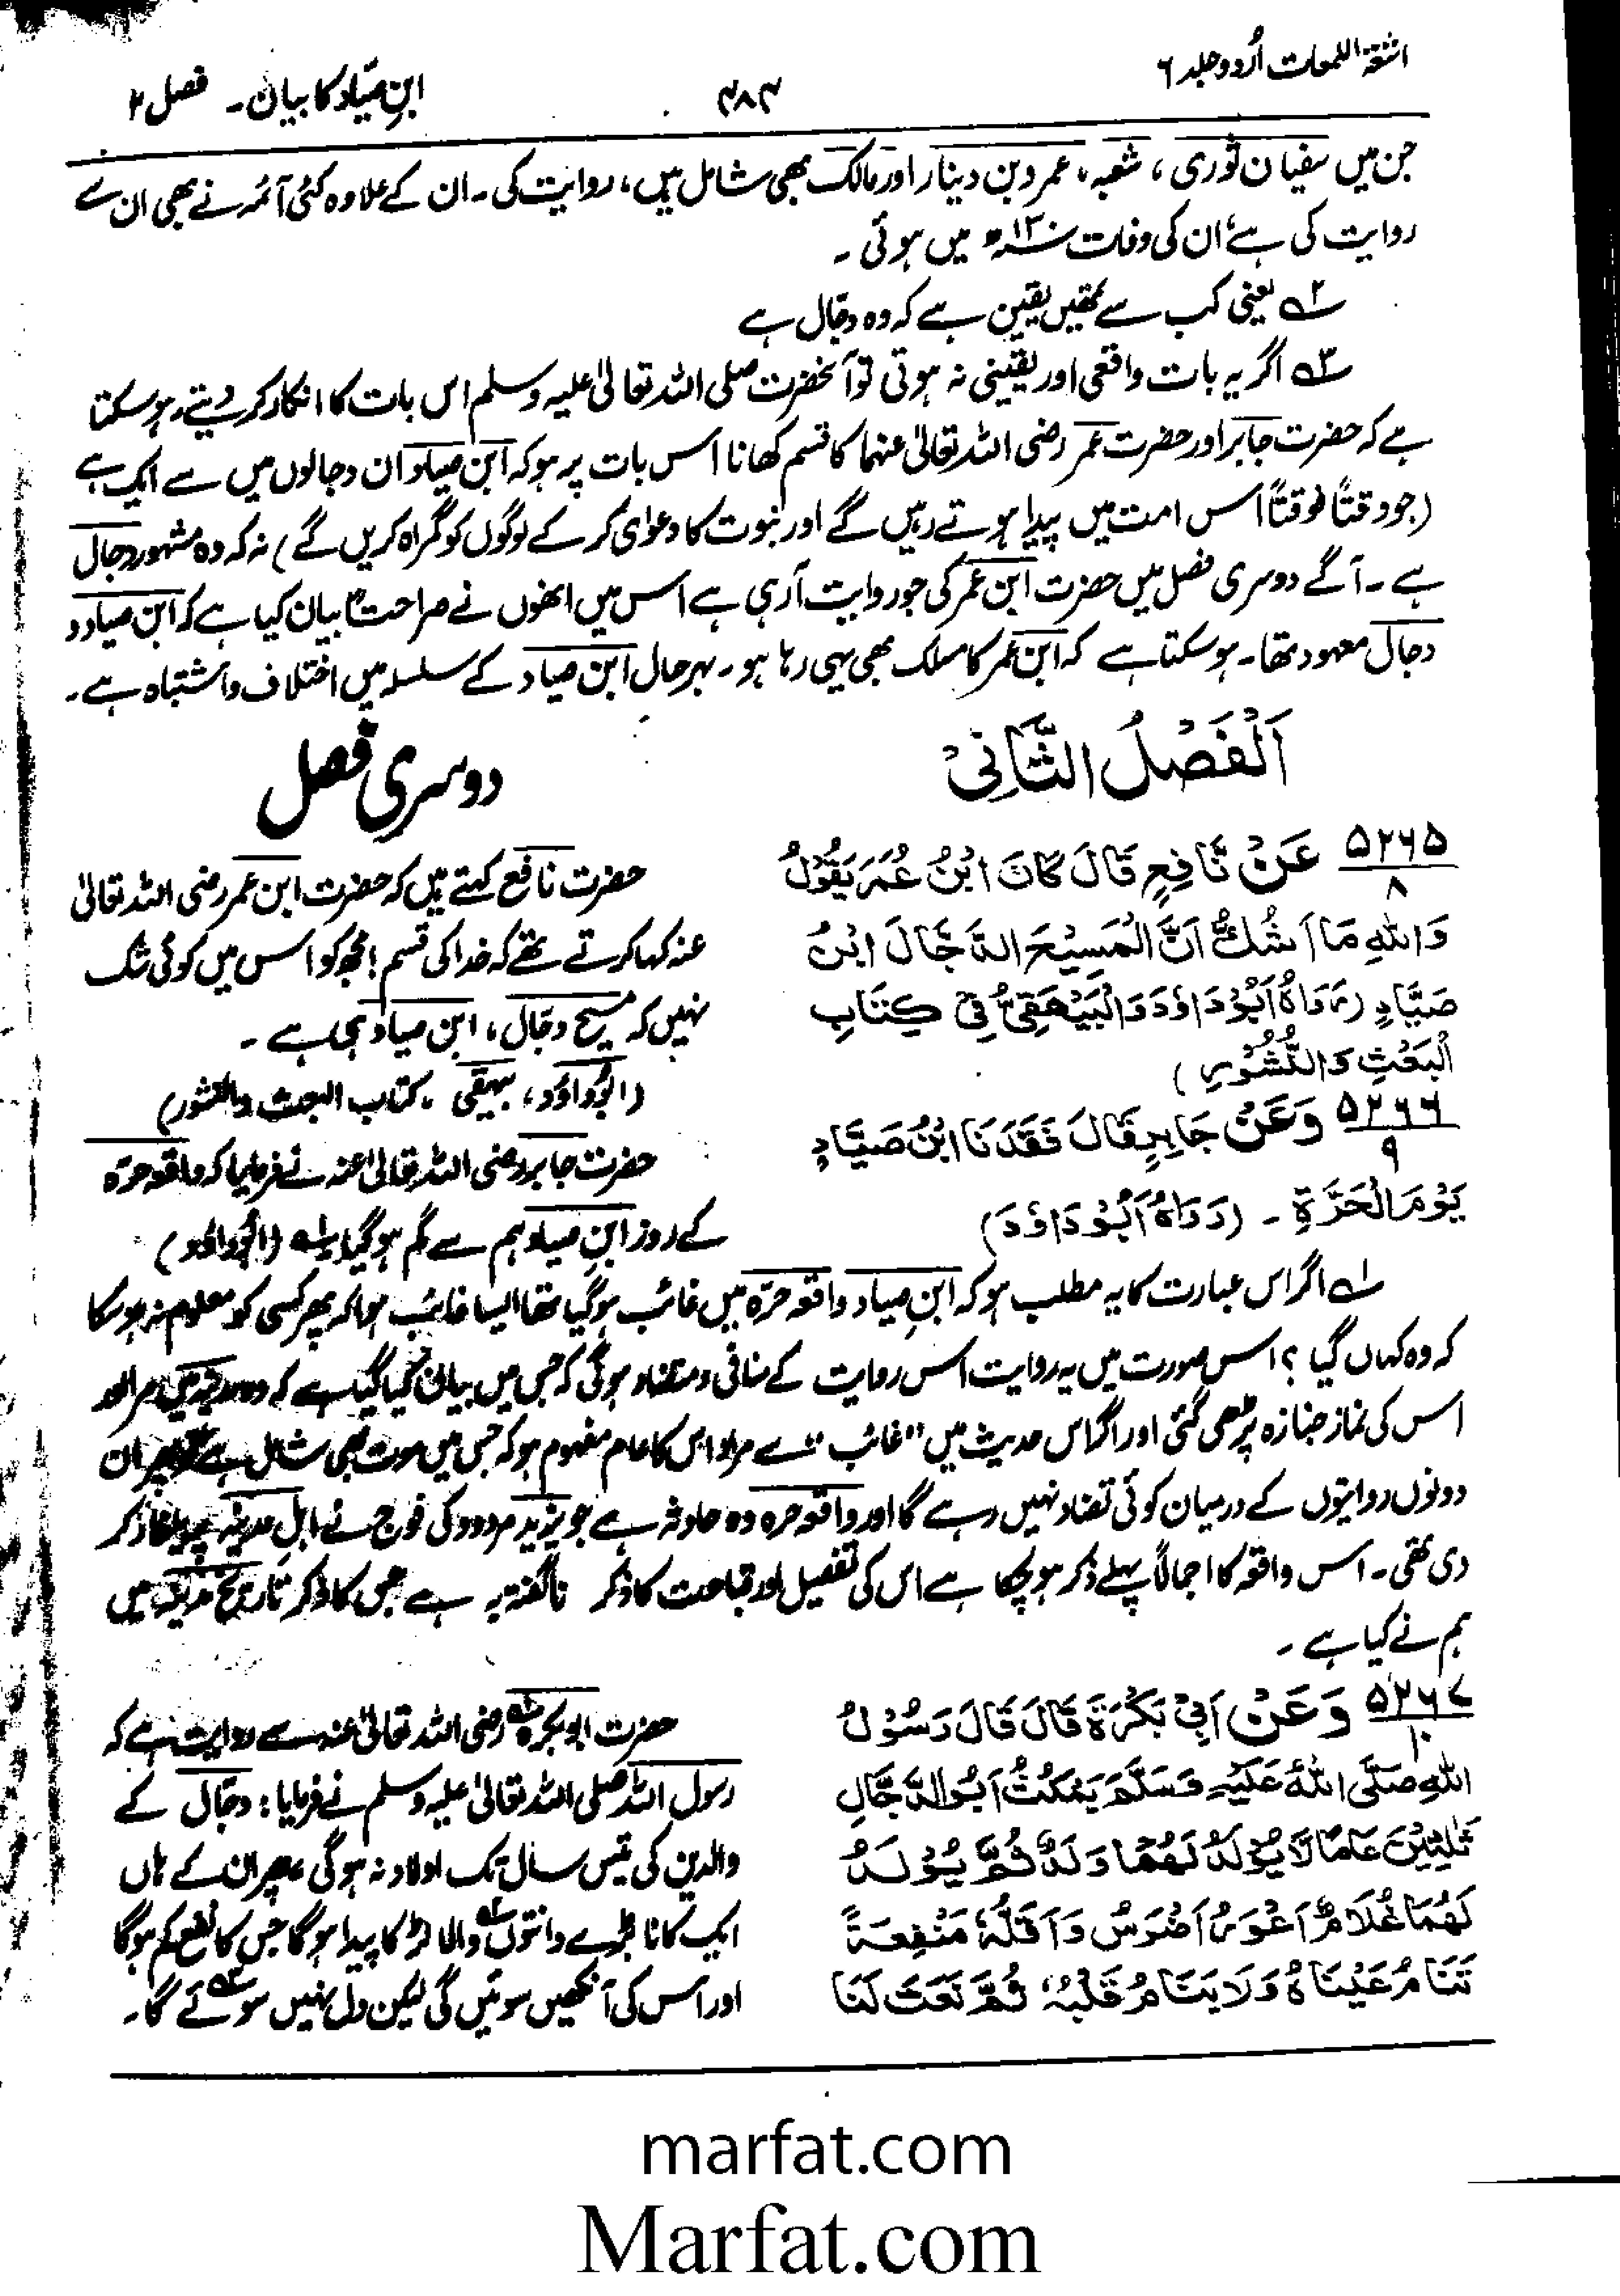 اشعۃ اللمعات اُردو جلد ۶
۴۸۴
ابنِ صیّاد کا بیان۔ فصل ۲
جن میں سفیان ثوری، شعبہ، عمرو بن دینار اور مالک بھی شامل ہیں، روایت کی۔ ان کے علاوہ کئی آئمہ نے بھی ان سے
روایت کی ہے، ان کی وفات ۱۳۰ھ میں ہوئی۔
۲؎ یعنی کب سے تمھیں یقین ہے کہ وہ دجّال ہے
۳؎ اگر یہ بات واقعی اور یقینی نہ ہوتی تو آنحضرت صلی اللہ تعالیٰ علیہ وسلم اس بات کا انکار کر دیتے، ہو سکتا
ہے کہ حضرت جابر اور حضرت عمر رضی اللہ تعالیٰ عنہما کا قسم کھانا اس بات پر ہو کہ ابن صیاد ان دجالوں میں سے ایک ہے
(جو وقتاً فوقتاً اس امت میں پیدا ہوتے رہیں گے اور نبوت کا دعوٰی کر کے لوگوں کو گمراہ کریں گے) نہ کہ وہ مشہور دجال
ہے۔ آگے دوسری فصل میں حضرت ابن عمر کی جو روایت آ رہی ہے اس میں انھوں نے صراحتاً بیان کیا ہے کہ ابن صیاد و
دجال معہود تھا۔ ہو سکتا ہے کہ ابن عمر کا مسلک بھی یہی رہا ہو۔ بہرحال ابن صیاد کے سلسلہ میں اختلاف و اشتباہ ہے۔
اَلْفَصْلُ الثَّانِیْ
دوسری فصل
۵۲۶۵/۸ عَنْ نَّافِعٍ قَالَ كَانَ ابْنُ عُمَرَ يَقُوْلُ
وَاللهِ مَا اَشُكُّ اَنَّ الْمَسِيْحَ الدَّجَّالَ ابْنُ
صَيَّادٍ (رَوَاهُ اَبُوْ دَاوٗدَ وَالْبَيْهَقِيُّ فِيْ كِتَابِ
الْبَعْثِ وَالنُّشُوْرِ)
حضرت نافع کہتے ہیں کہ حضرت ابن عمر رضی اللہ تعالیٰ
عنہ کہا کرتے تھے کہ خدا کی قسم! مجھ کو اس میں کوئی شک
نہیں کہ مسیح دجّال، ابن صیاد ہی ہے۔
(ابوداؤد، بیہقی، کتاب البعث والنشور)
۵۲۶۶/۹ وَعَنْ جَابِرٍ قَالَ فَقَدْنَا ابْنُ صَيَّادٍ
يَوْمَ الْحَرَّةِ۔ (رَوَاهُ اَبُوْ دَاوٗدَ)
حضرت جابر رضی اللہ تعالیٰ عنہ نے فرمایا کہ واقعہ حرّہ
کے روز ابنِ صیاد ہم سے گم ہو گیا ۱؎ (ابوداؤد)
۱؎ اگر اس عبارت کا یہ مطلب ہو کہ ابنِ صیاد واقعہ حرّہ میں غائب ہو گیا تھا ایسا غائب ہوا کہ پھر کسی کو معلوم نہ ہو سکا
کہ وہ کہاں گیا؟ اس صورت میں یہ روایت اس روایت کے منافی و متضاد ہو گی کہ جس میں بیان کیا گیا ہے کہ وہ مدینہ میں مرا اور
اس کی نماز جنازہ پڑھی گئی اور اگر اس حدیث میں "غائب" سے مراد اس کا عام مفہوم ہو کہ جس میں موت بھی شامل ہے تو پھر ان
دونوں روایتوں کے درمیان کوئی تضاد نہیں رہے گا اور واقعہ حرہ وہ حادثہ ہے جو یزید مردود کی فوج نے اہل مدینہ پر یلغار کر
دی تھی۔ اس واقعہ کا اجمالاً پہلے ذکر ہو چکا ہے اس کی تفصیل اور قباحت کا ذکر ناگفتہ بہ ہے جس کا ذکر تاریخ مدینہ میں
ہم نے کیا ہے۔
۵۲۶۷/۱۰ وَعَنْ اَبِيْ بَكْرَةَ قَالَ قَالَ رَسُوْلُ
اللهِ صَلَّى اللهُ عَلَيْهِ وَسَلَّمَ يَمْكُثُ اَبُو الدَّجَّالِ
ثَلٰثِيْنَ عَامًا لَا يُوْلَدُ لَهُمَا وَلَدٌ ثُمَّ يُوْلَدُ
لَهُمَا غُلَامٌ اَعْوَرُ اَضْرَسُ وَاَقَلُّهٗ مَنْفِعَةً
تَنَامُ عَيْنَاهُ وَلَا يَنَامُ قَلْبُهٗ ثُمَّ نَعَتَ لَنَا
حضرت ابوبکرہ ۱؎ رضی اللہ تعالیٰ عنہ سے روایت ہے کہ
رسول اللہ صلی اللہ تعالیٰ علیہ وسلم نے فرمایا: دجّال کے
والدین کی تیس سال تک اولاد نہ ہو گی پھر ان کے ہاں
ایک کانا بڑے دانتوں ۲؎ والا لڑکا پیدا ہو گا جس کا نفع کم ہو گا
اور اس کی آنکھیں سوئیں گی لیکن دل نہیں سوئے ۳؎ گا۔
marfat.com
Marfat.com